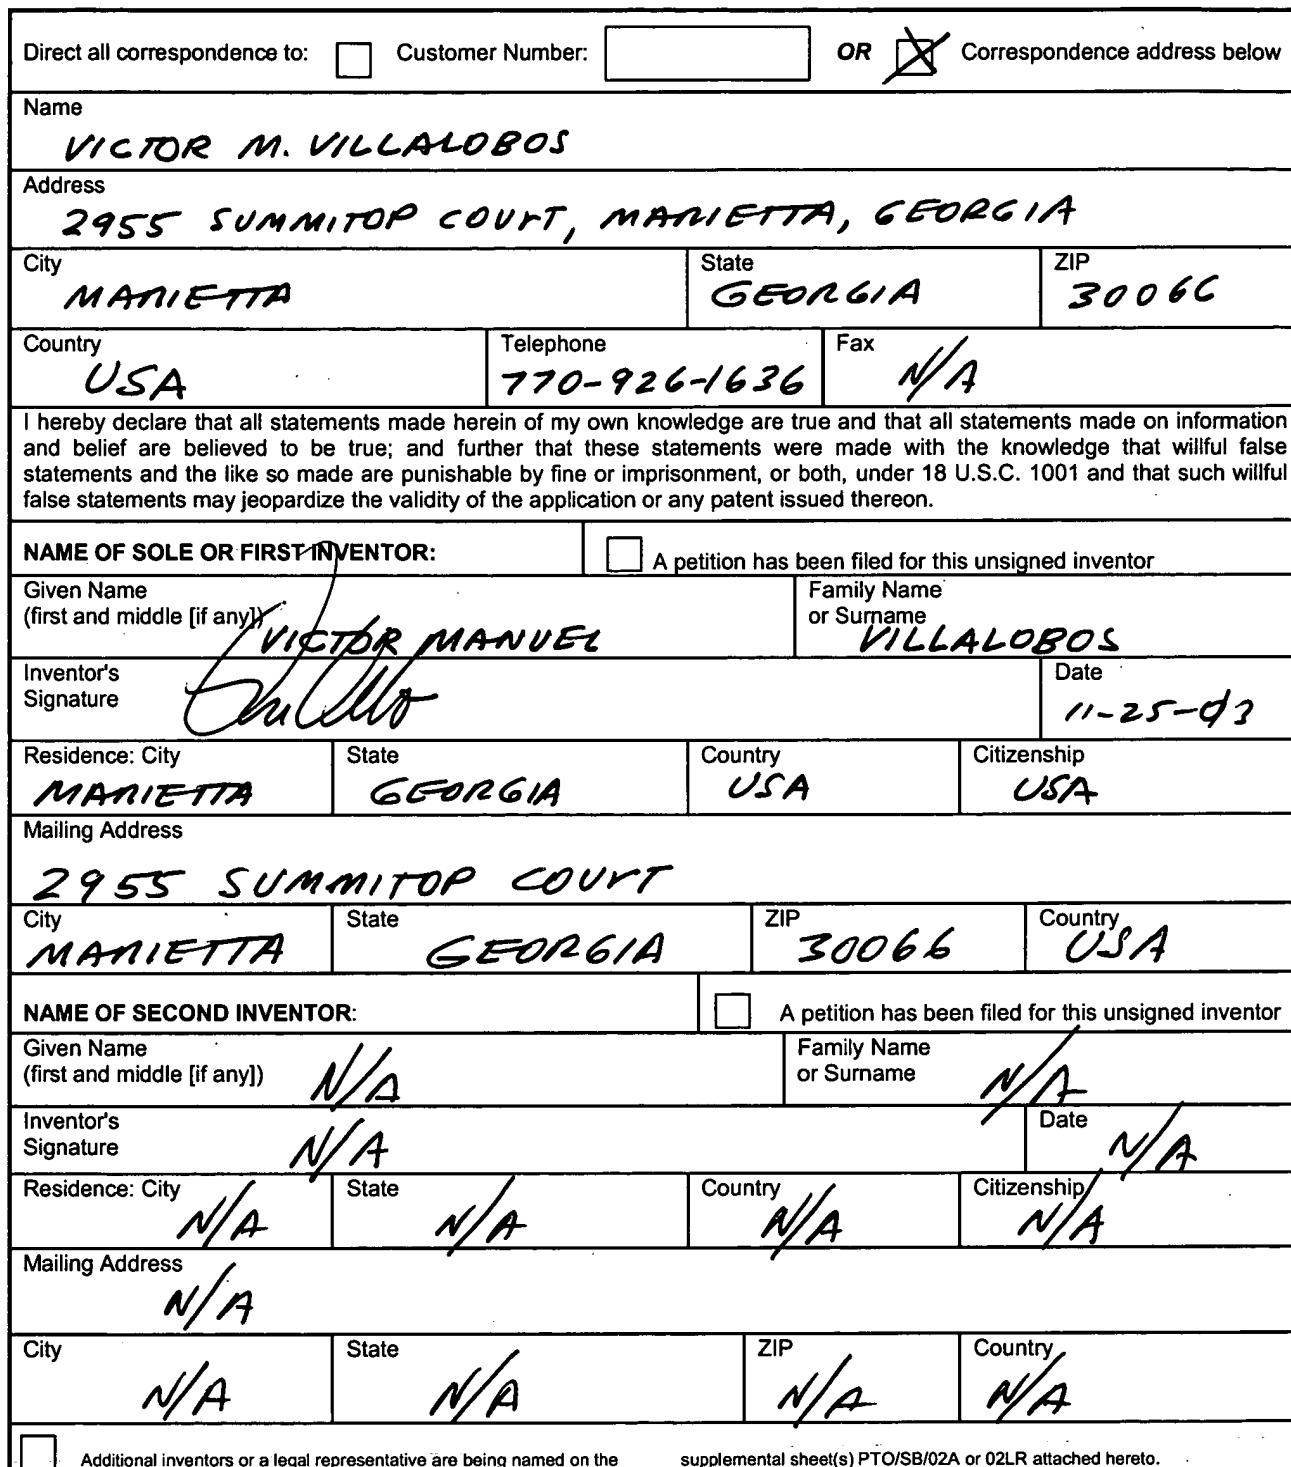 Direct all correspondence to: Customer Number: OR Correspondence address below
Name
VICTOR M. VILLALOBOS
Address
2955 SUMMITOP COURT, MARIETTA, GEORGIA
City State ZIP
MARIETTA GEORGIA 30066
Country Telephone Fax
USA 770-926-1636 N/A
I hereby declare that all statements made herein of my own knowledge are true and that all statements made on information
and belief are believed to be true; and further that these statements were made with the knowledge that willful false
statements and the like so made are punishable by fine or imprisonment, or both, under 18 U.S.C. 1001 and that such willful
false statements may jeopardize the validity of the application or any patent issued thereon.
NAME OF SOLE OR FIRST INVENTOR: A petition has been filed for this unsigned inventor
Given Name Family Name
(first and middle [if any]) or Surname
VICTOR MANUEL VILLALOBOS
Inventor's Date
Signature
11-25-03
Residence: City State Country Citizenship
MARIETTA GEORGIA USA USA
Mailing Address
2955 SUMMITOP COURT
City State ZIP Country
MARIETTA GEORGIA 30066 USA
NAME OF SECOND INVENTOR: A petition has been filed for this unsigned inventor
Given Name Family Name
(first and middle [if any]) or Surname
N/A N/A
Inventor's Date
Signature
N/A N/A
Residence: City State Country Citizenship
N/A N/A N/A N/A
Mailing Address
N/A
City State ZIP Country
N/A N/A N/A N/A
Additional inventors or a legal representative are being named on the supplemental sheet(s) PTO/SB/02A or 02LR attached hereto.